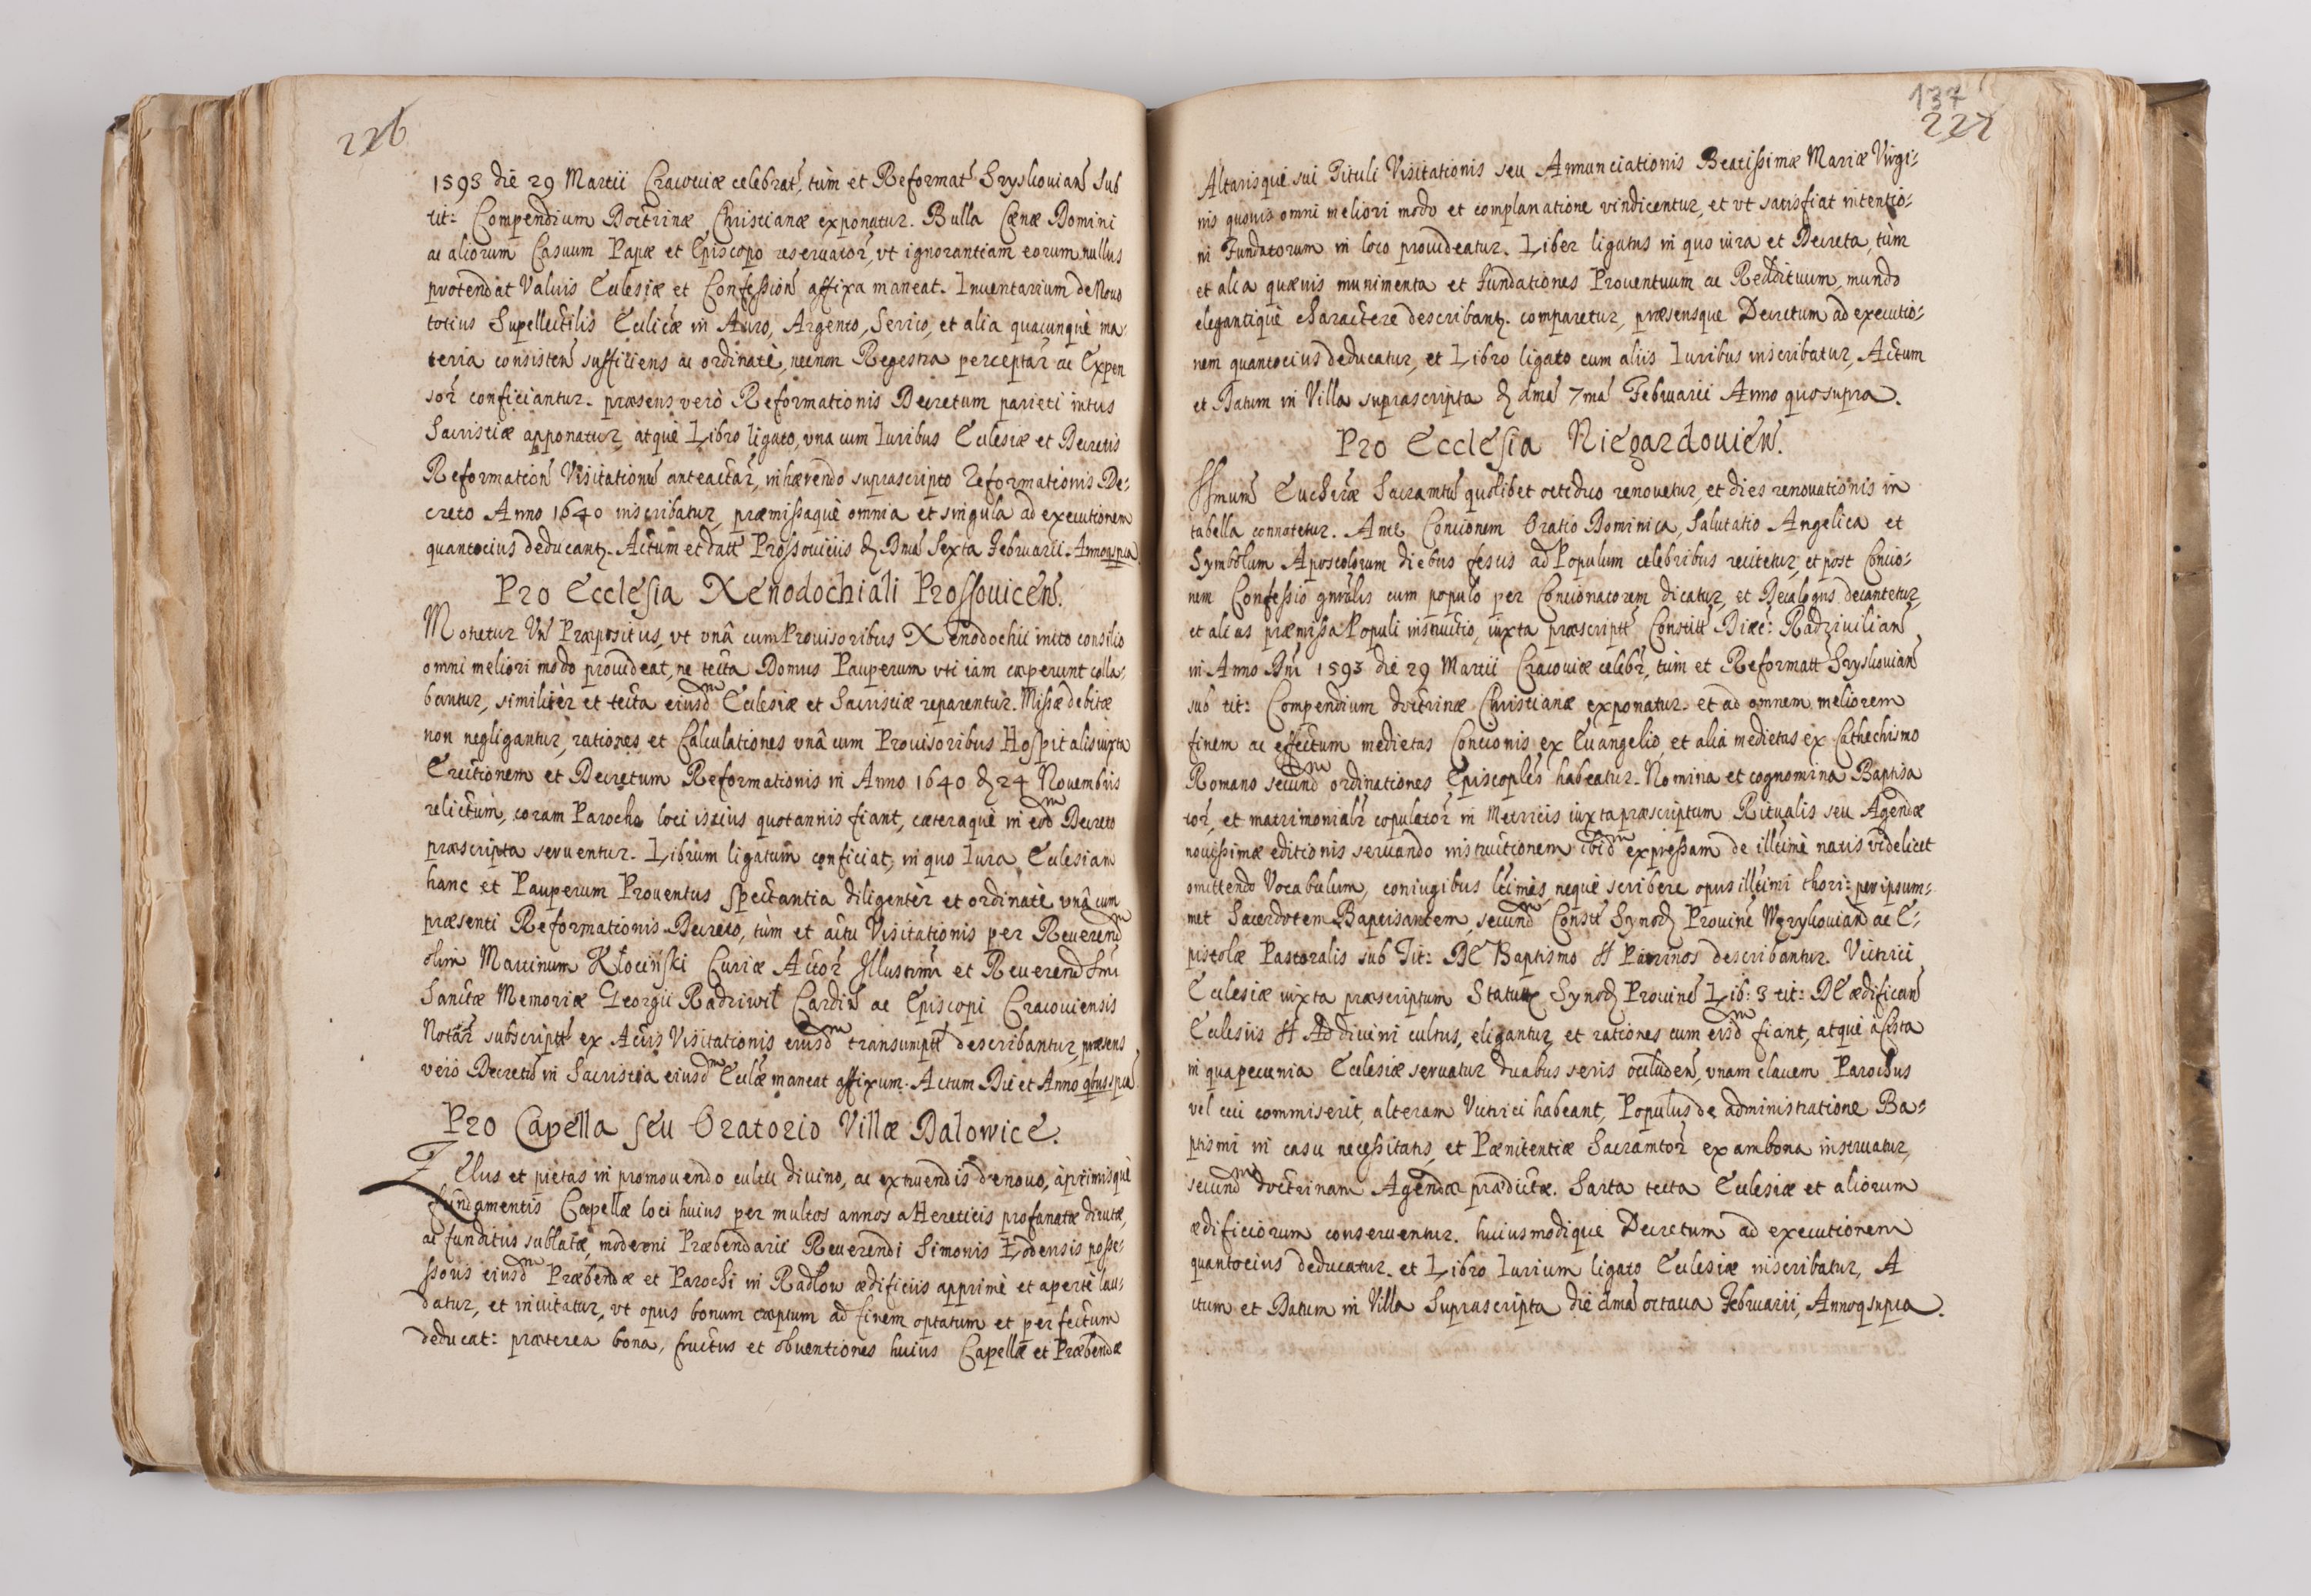 226
1593 die 29 Martii Cracouiæ celebrat, tùm et Reformat Srysliouian sub
tit: Compendium Doctrinæ Christianæ exponatur. Bulla Cænæ Domini
ac aliorum Casuum Papæ et Episcopo reseruator, vt ignorantiam eorum nullus
protendat Valuis Eulesiæ et Confession affixa maneat. Inuentarium de Nouo
totius Supellectilis Eulicæ in Auro, Argento, Serico, et alia quacunquè ma-
teria consisten sufficiens ac ordinatè, necnon Regestra perceptar ac Expen
sor conficiantur. præsens verò Reformationis Decretum parieti intus
Sacristiæ apponatur, atquè Libro ligato, vna cum Iuribus Eulesiæ et Decretis
Reformation Visitationu anteactar, inhærendo suprascripto Reformationis De-
creto Anno 1640 inscribatur, præmissaquè omnia et singula ad executionem
quantocius deducant. Actum et datt Prossouiciis d Dnica Sexta Februarii. Anno qspra.
Pro Ecclesia Xenodochiali Prossouicen.
Monetur Vn Præpositus, vt vnâ cum Prouisoribus Xenodochii inito consilio
omni meliori modo prouideat, ne tecta Domus Pauperum vti iam cæperunt colla-
bantur, similitèr et tecta eiusdm Eulesiæ et Sacristiæ reparentur. Missæ debitæ
non negligantur, rationes et Calculationes vnâ cum Prouisoribus Hospitalis iuxta
Erectionem et Decretum Reformationis in Anno 1640 d 24 Nouembris
relictum, coram Parocho loci istius quotannis fiant, cæteraquè in eodm Decreto
præscripta seruentur. Librum ligatum conficiat, in quo Iura Eulesiam
hanc et Pauperum Prouentus spectantia diligentèr et ordinatè vnâ cum
præsenti Reformationis Decreto, tùm et actu Visitationis per Reuerendm
olim Martinum Kłocinski Curiæ Actor Illustrimi et Reuerend Smi
Sanctæ Memoriæ Georgii Radziwił Cardin ac Episcopi Cracouiensis
Notar subscriptt ex Actis Visitationis eiusdm transumptt describantur, præsens
verò Decretu in Sacristia eiusdm Eulæ maneat affixum. Actum Die et Anno qbus spra.
Pro Capella seu Oratorio Villæ Dalowice.
Zelus et pietas in promouendo cultu diuino, ac extruendis denouo, à primisquè
fundamentis Capellæ loci huius per multos annos a Hereticis profanatæ dirutæ,
ac funditus sublatæ, moderni Præbendarii Reuerendi Simonis Łodensis posse-
ssoris eiusdm Præbendæ et Parochi in Radłow ædificiis apprimè et apertè lau-
datur, et inuitatur, vt opus bonum cæptum ad finem optatum et perfectum
deducat: præterea bona, fructus et obuentiones huius Capellæ et Præbendæ
137
227
Altarisquè sui Tituli Visitationis seu Annunciationis Beatissimæ Mariæ Virgi-
nis quouis omni meliori modo et complanatione vindicentur, et vt satisfiat intentio-
ni Fundatorum in loco prouideatur. Liber ligatus in quo iura et Decreta, tùm
et alia quæuis munimenta et Fundationes Prouentuum ac Reddituum, mundo
elegantiquè charactere describant. comparetur, præsensque Decretum ad executio-
nem quantocius deducatur, et Libro ligato cum aliis Iuribus inscribatur, Actum
et Datum in Villa suprascripta d dma 7ma Februarii Anno quo supra.
Pro Ecclesia Niegardouien.
Ssmum Eucharæ Sacramtu quolibet octiduo renouetur, et dies renouationis in
tabella connotetur. Ante Concionem Oratio Dominica, Salutatio Angelica et
Symbolum Apostolorum diebus festis ad Populum celebribus recitetur, et post Concio-
nem Confessio gnralis cum populo per Concionatorem dicatur, et Decalogus decantetur,
et alias præmissa Populi instructio, iuxta præscriptt Constitt Diæc: Radziuilian
in Anno Dni 1593 die 29 Martii Cracouiæ celebr, tùm et Reformatt Srysliouian
sub tit: Compendium doctrinæ Christianæ exponatur. et ad omnem meliorem
finem ac effectum medietas Concionis ex Euangelio, et alia medietas ex Cathechismo
Romano secundm ordinationes Episcoples habeatur. Nomina et cognomina Baptisa
tor, et matrimonialr copulator in Metricis iuxta præscriptum Ritualis seu Agendæ
nouissimæ editionis seruando instructionem ibidm expressam de illtimè natis videlicet
omittendo Vocabulum, coniugibus ltimis, nequè scribere opus illtimi thori: per ipsum-
met Sacerdotem Baptisantem, secundm Constt Synod Prouinc Wryliouian ac E-
pistolæ Pastoralis sub Tit: De Baptismo ff Patrinos describantur. Vitrici
Eulesiæ iuxta præscriptum Statutt Synod Prouinc Lib: 3 tit: De ædifican
Eulesiis ff Ad diuini cultus, eligantur, et rationes cum eisdm fiant, atquè cista
in qua pecunia Eulesiæ seruatur duabus seris occluden, vnam clauem Parochus
vel cui commiserit, alteram Vitrici habeant, Populus de administratione Ba-
ptismi in casu necessitatis, et Pænitentiæ Sacramtor ex ambona instruatur,
secundm doctrinam Agendæ prædictæ. Sarta tecta Eulesiæ et aliorum
ædificiorum conseruentur. huiusmodique Decretum ad executionem
quantocius deducatur. et Libro Iurium ligato Eulesiæ inscribatur, A
ctum et Datum in Villa Suprascripta die dma octaua Februarii, Anno q supra.